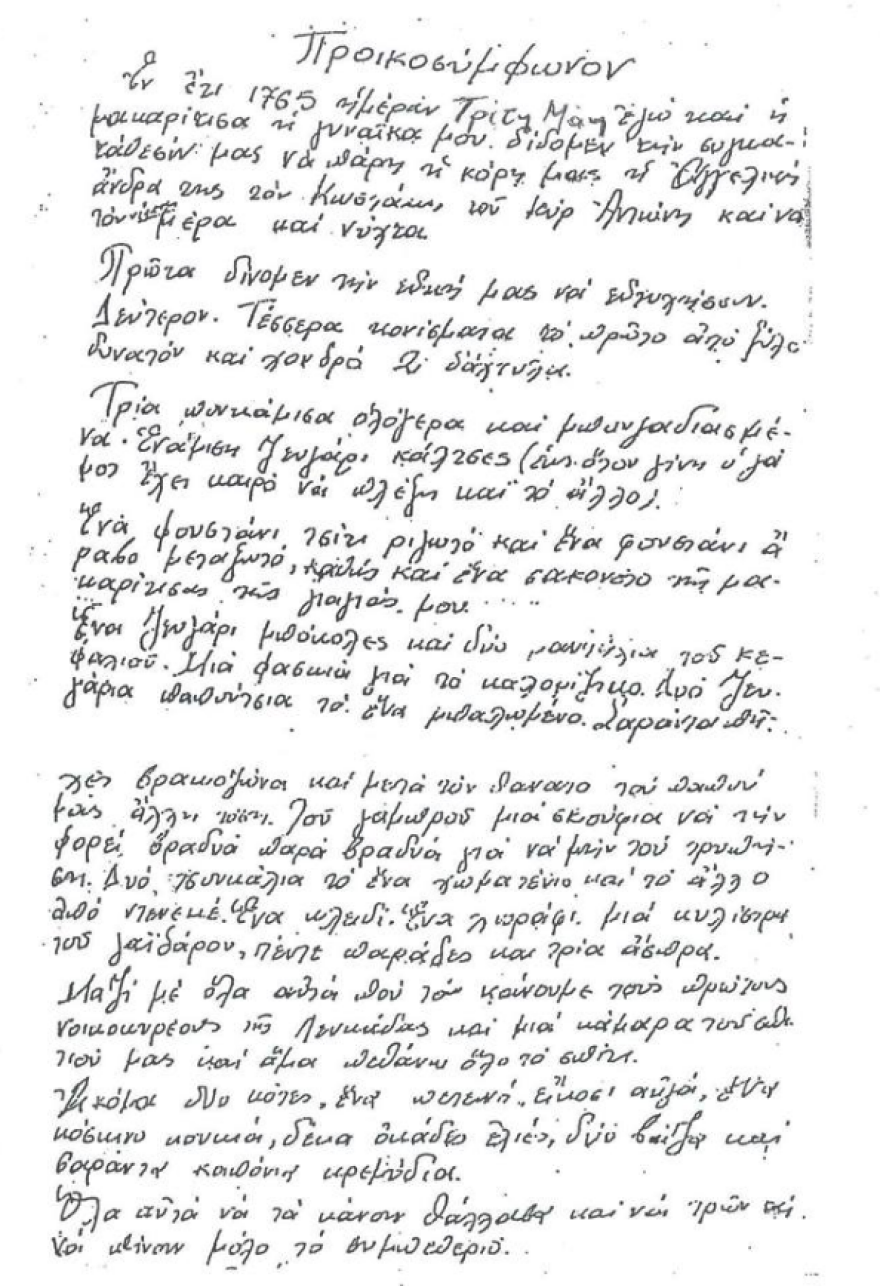 Προικοσύμφωνον
Ἐν ἔτι 1765 ἡμέραν Τρίτη Μάη ἐγώ καί ἡ
μακαρίτισα ἡ γυναῖκα μου δίδομεν τήν συγκα-
τάθεσήν μας νά πάρη ἡ κόρη μας ἡ Ἀγγελική
ἄνδρα της τόν Κωστάκη τοῦ κύρ Ἀντώνη καί νά
τόν μέρα καί νύχτα
Πρῶτα δίνομεν τήν εὐχή μας νά εὐτυχήσουν.
Δεύτερον. Τέσσερα κονίσματα τό πρῶτο ἀπό ξύλο
δυνατόν καί χονδρό 2 δάχτυλα.
Τρία πουκάμισα ὁλόγερα καί μπουγαδιασμέ-
να. Ἑνάμιση ζευγάρι κάλτσες (ἕως ὅτου γίνη ὁ γά
μος ἔχει καιρό νά πλέξη καί τό ἄλλο).
Ἕνα φουστάνι τσίτι ριγωτό καί ἕνα φουστάνι ἄ
ραβο μεταξωτό, καθώς καί ἕνα σακονέτο τῆς μα-
καρίτισας τῆς γιαγιάς μου....
Ἕνα ζευγάρι μπόκολες καί δύο μαντήλια τοῦ κε-
φαλιοῦ. Μιά φασκιά γιά τό καλορίζικο. Δυό ζευ-
γάρια παπούτσια τό ἕνα μπαλωμένο. Σαράντα πή-
χες βρακοζώνα καί μετά τόν θάνατο τοῦ παπποῦ
μας ἄλλη τόση. Τοῦ γαμπροῦ μιά σκούφια νά τήν
φορεί βραδυά παρά βραδυά γιά νά μήν τοῦ τρυπή-
ση. Δυό τσουκάλια τό ἕνα χωματένιο καί τό ἄλλο
ἀπό ντενεκέ. Ἕνα κλειδί. Ἕνα χωράφι μιά κυλίστρα
τοῦ γαϊδάρου, πέντε παράδες και τρία ἄσπρα.
Μαζί μέ ὅλα αὐτά πού τόν κάνουμε τούς πρώτους
νοικοκυρέους τῆς Λευκάδας καί μιά κάμαρα τοῦ σπι
τιοῦ μας καί ἅμα πεθάνω ὅλο τό σπίτι.
Ἀκόμα δυο κότες, ἕνα πετεινό, εἴκοσι αὐγά, ἕνα
κόσκινο κουκιά, δέκα ὀκάδες ἐλιές, δυό καί
σαράντα καπόνια κρεμύδια.
Ὅλα αὐτά νά τά κάνουν θάλλασα καί νά τρῶν καί
νά πίνουν μόλο τό συμπεθεριό.